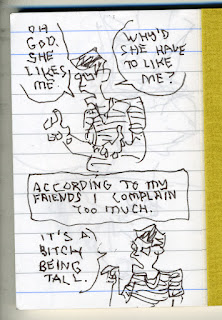 OH
GOD.
SHE
LIKES
ME.
WHY'D
SHE HAVE
TO LIKE
ME?
ACCORDING TO MY
FRIENDS I COMPLAIN
TOO MUCH.
IT'S A
BITCH
BEING
TALL.